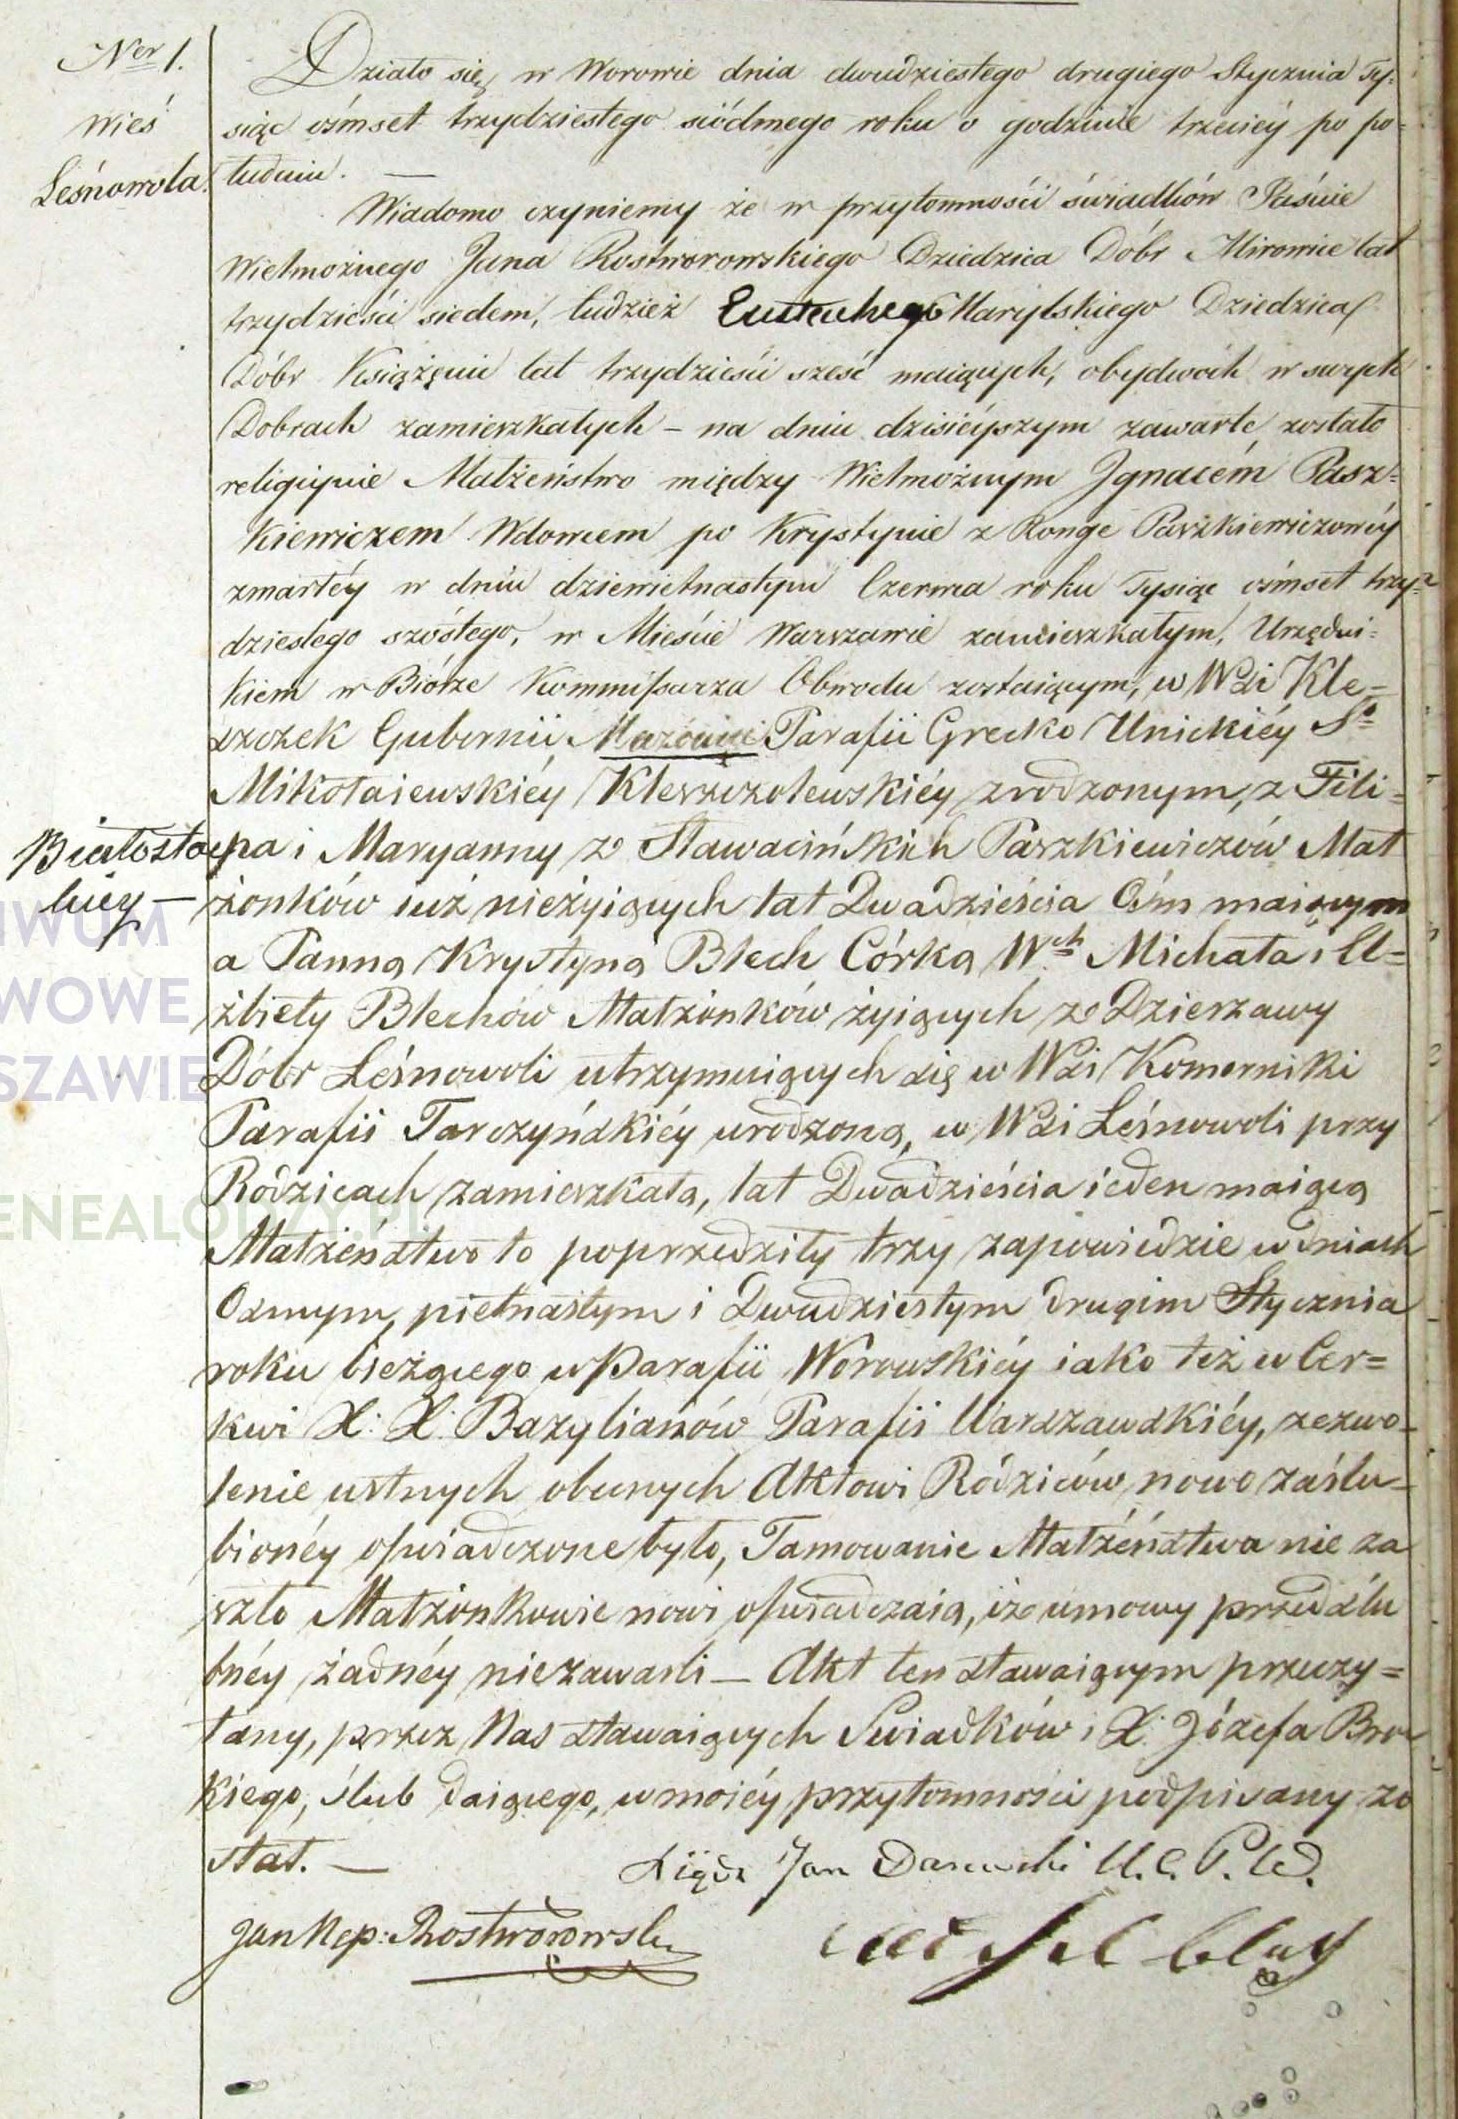 Ner 1.
Wieś
Leśnowola.
Działo się w Worowie dnia dwudziestego drugiego Stycznia Ty-
siąc ośmset trzydziestego siódmego roku o godzinie trzeciéy po po-
łudniu. —
Wiadomo czyniemy że w przytomności świadków Jaśnie
Wielmożnego Jana Rostworowskiego Dziedzica Dóbr Mirowice lat
trzydzieści siedem, tudzież Eustachego Marylskiego Dziedzica
Dóbr Książęnic lat trzydzieści sześć maiących, obydwóch w swych
Dobrach zamieszkałych – na dniu dzisieyszym zawarte zostało
religiynie Małżeństwo między Wielmożnym Ignacém Pasz-
kiewiczem Wdowcem po Krystynie z Ronge Paszkiewiczowéy
zmarłéy w dniu dziewietnastym Czerwca roku Tysiąc ośmset trzy-
dziestego szóstego, w Mieście Warszawie zamieszkałym, Urzędni-
kiem w Biórze Kommissarza Obwodu zostaiącym, w Wsi Kle-
szczek Gubernii Parafii Grecko Unickiéy So
Mikołaiewskiéy Kleszczolewskiéy zrodzonym, z Fili-
Białosto
ckiey —
pa i Maryanny z Sławacińskich Paszkiewiczów Mał
żonków iuż nieżyiących lat Dwadzieścia Ośm maiącym
a Panną Krystyną Blech Córką Wch Michała i El-
żbiety Blechów Małżonków żyiących z Dzierzawy
Dóbr Leśnowoli utrzymuiących się w Wsi Komorniki
Parafii Tarczyńskiéy urodzoną, w Wsi Leśnowoli przy
Rodzicach zamieszkałą, lat Dwadzieścia ieden maiącą
Małżeństwo to poprzedziły trzy zapowiedzie w dniach
Osmym, pietnastym i Dwudziestym drugim Stycznia
roku bieżącego w Parafii Worowskiéy iako też w Cer-
kwi X. X. Bazylianów Parafii Warszawskiéy, zezwo-
lenie ustnych obecnych Aktowi Rodziców nowo zaślu-
bionéy oświadczone było, Tamowanie Małżeństwa nie za
szło Małżonkowie nowi oświadczaią, iż umowy przedślu
bnéy żadnéy niezawarli – Akt ten stawaiącym przeczy-
tany, przez Nas stawaiących Swiadków i X. Józefa
kiego, ślub daiącego, w moiéy przytomności podpisany zo
stał. —
Xiądz Jan U. C. P. W.
Jan Nep: Rostworowski
IWUM
WOWE
SZAWIE
ENEALODZY.PL